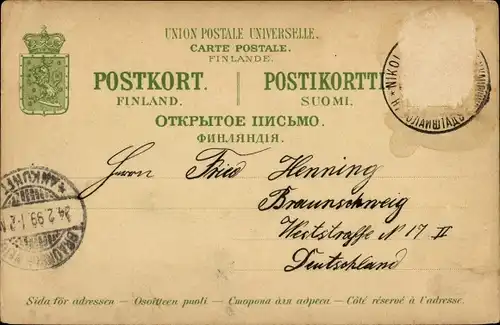 UNION POSTALE UNIVERSELLE.
CARTE POSTALE.
FINLANDE.
POSTKORT. POSTIKORTTI
FINLAND. SUOMI.
ОТКРЫТОЕ ПИСЬМО.
ФИНЛЯНДІЯ.
NIKO
ANKUNFT
24.2.99.1-2N
BRAUN
Herrn Fried Henning
Braunschweig
Weststraße N 17 II
Deutschland
Sida för adressen — Osoitteen puoli — Сторона для адреса — Côté réservé à l'adresse.